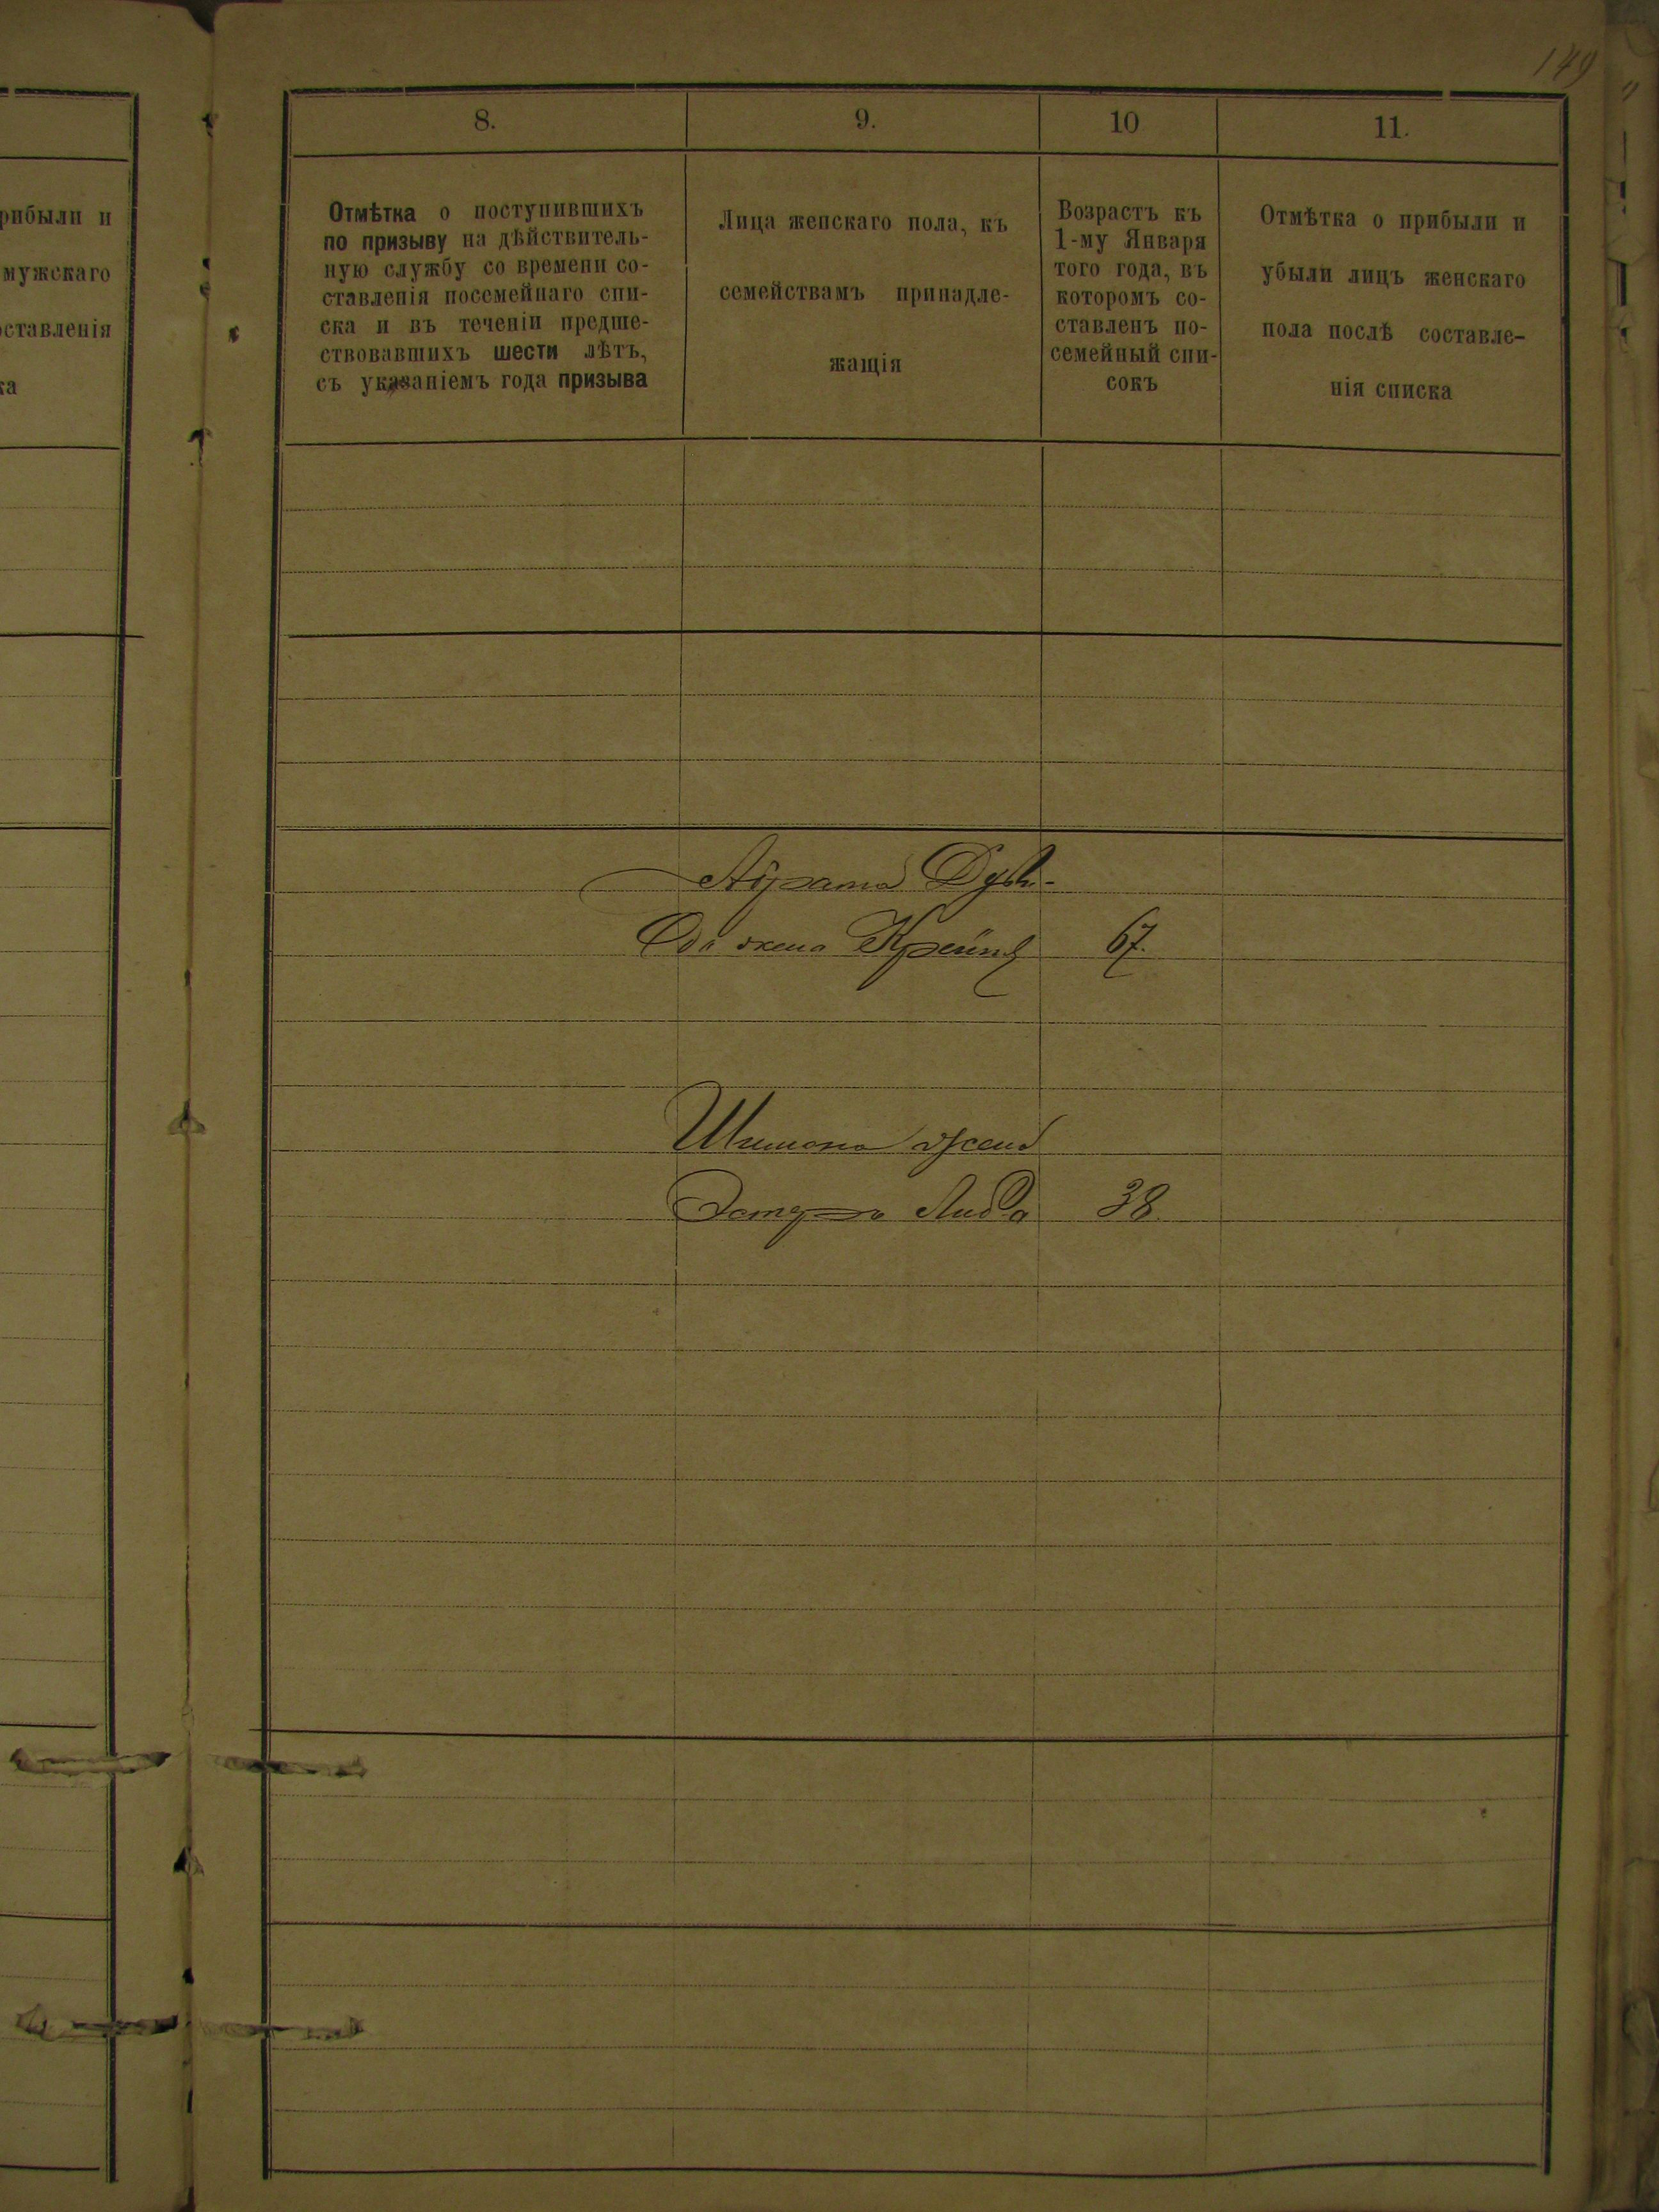 149
рибыли и
мужскаго
оставленія
ка
8.
9.
10
11.
Отмѣтка о поступившихъ
по призыву на дѣйствитель-
ную службу со времени со-
ставленія посемейнаго спи-
ска и въ теченіи предше-
ствовавшихъ шести лѣтъ,
съ указаніемъ года призыва
Лица женскаго пола, къ
семействамъ принадле-
жащія
Возрастъ къ
1-му Января
того года, въ
которомъ со-
ставленъ по-
семейный спи-
сокъ
Отмѣтка о прибыли и
убыли лицъ женскаго
пола послѣ составле-
нія списка
жена 67.
Шимона жена
Эстеръ Либа 38